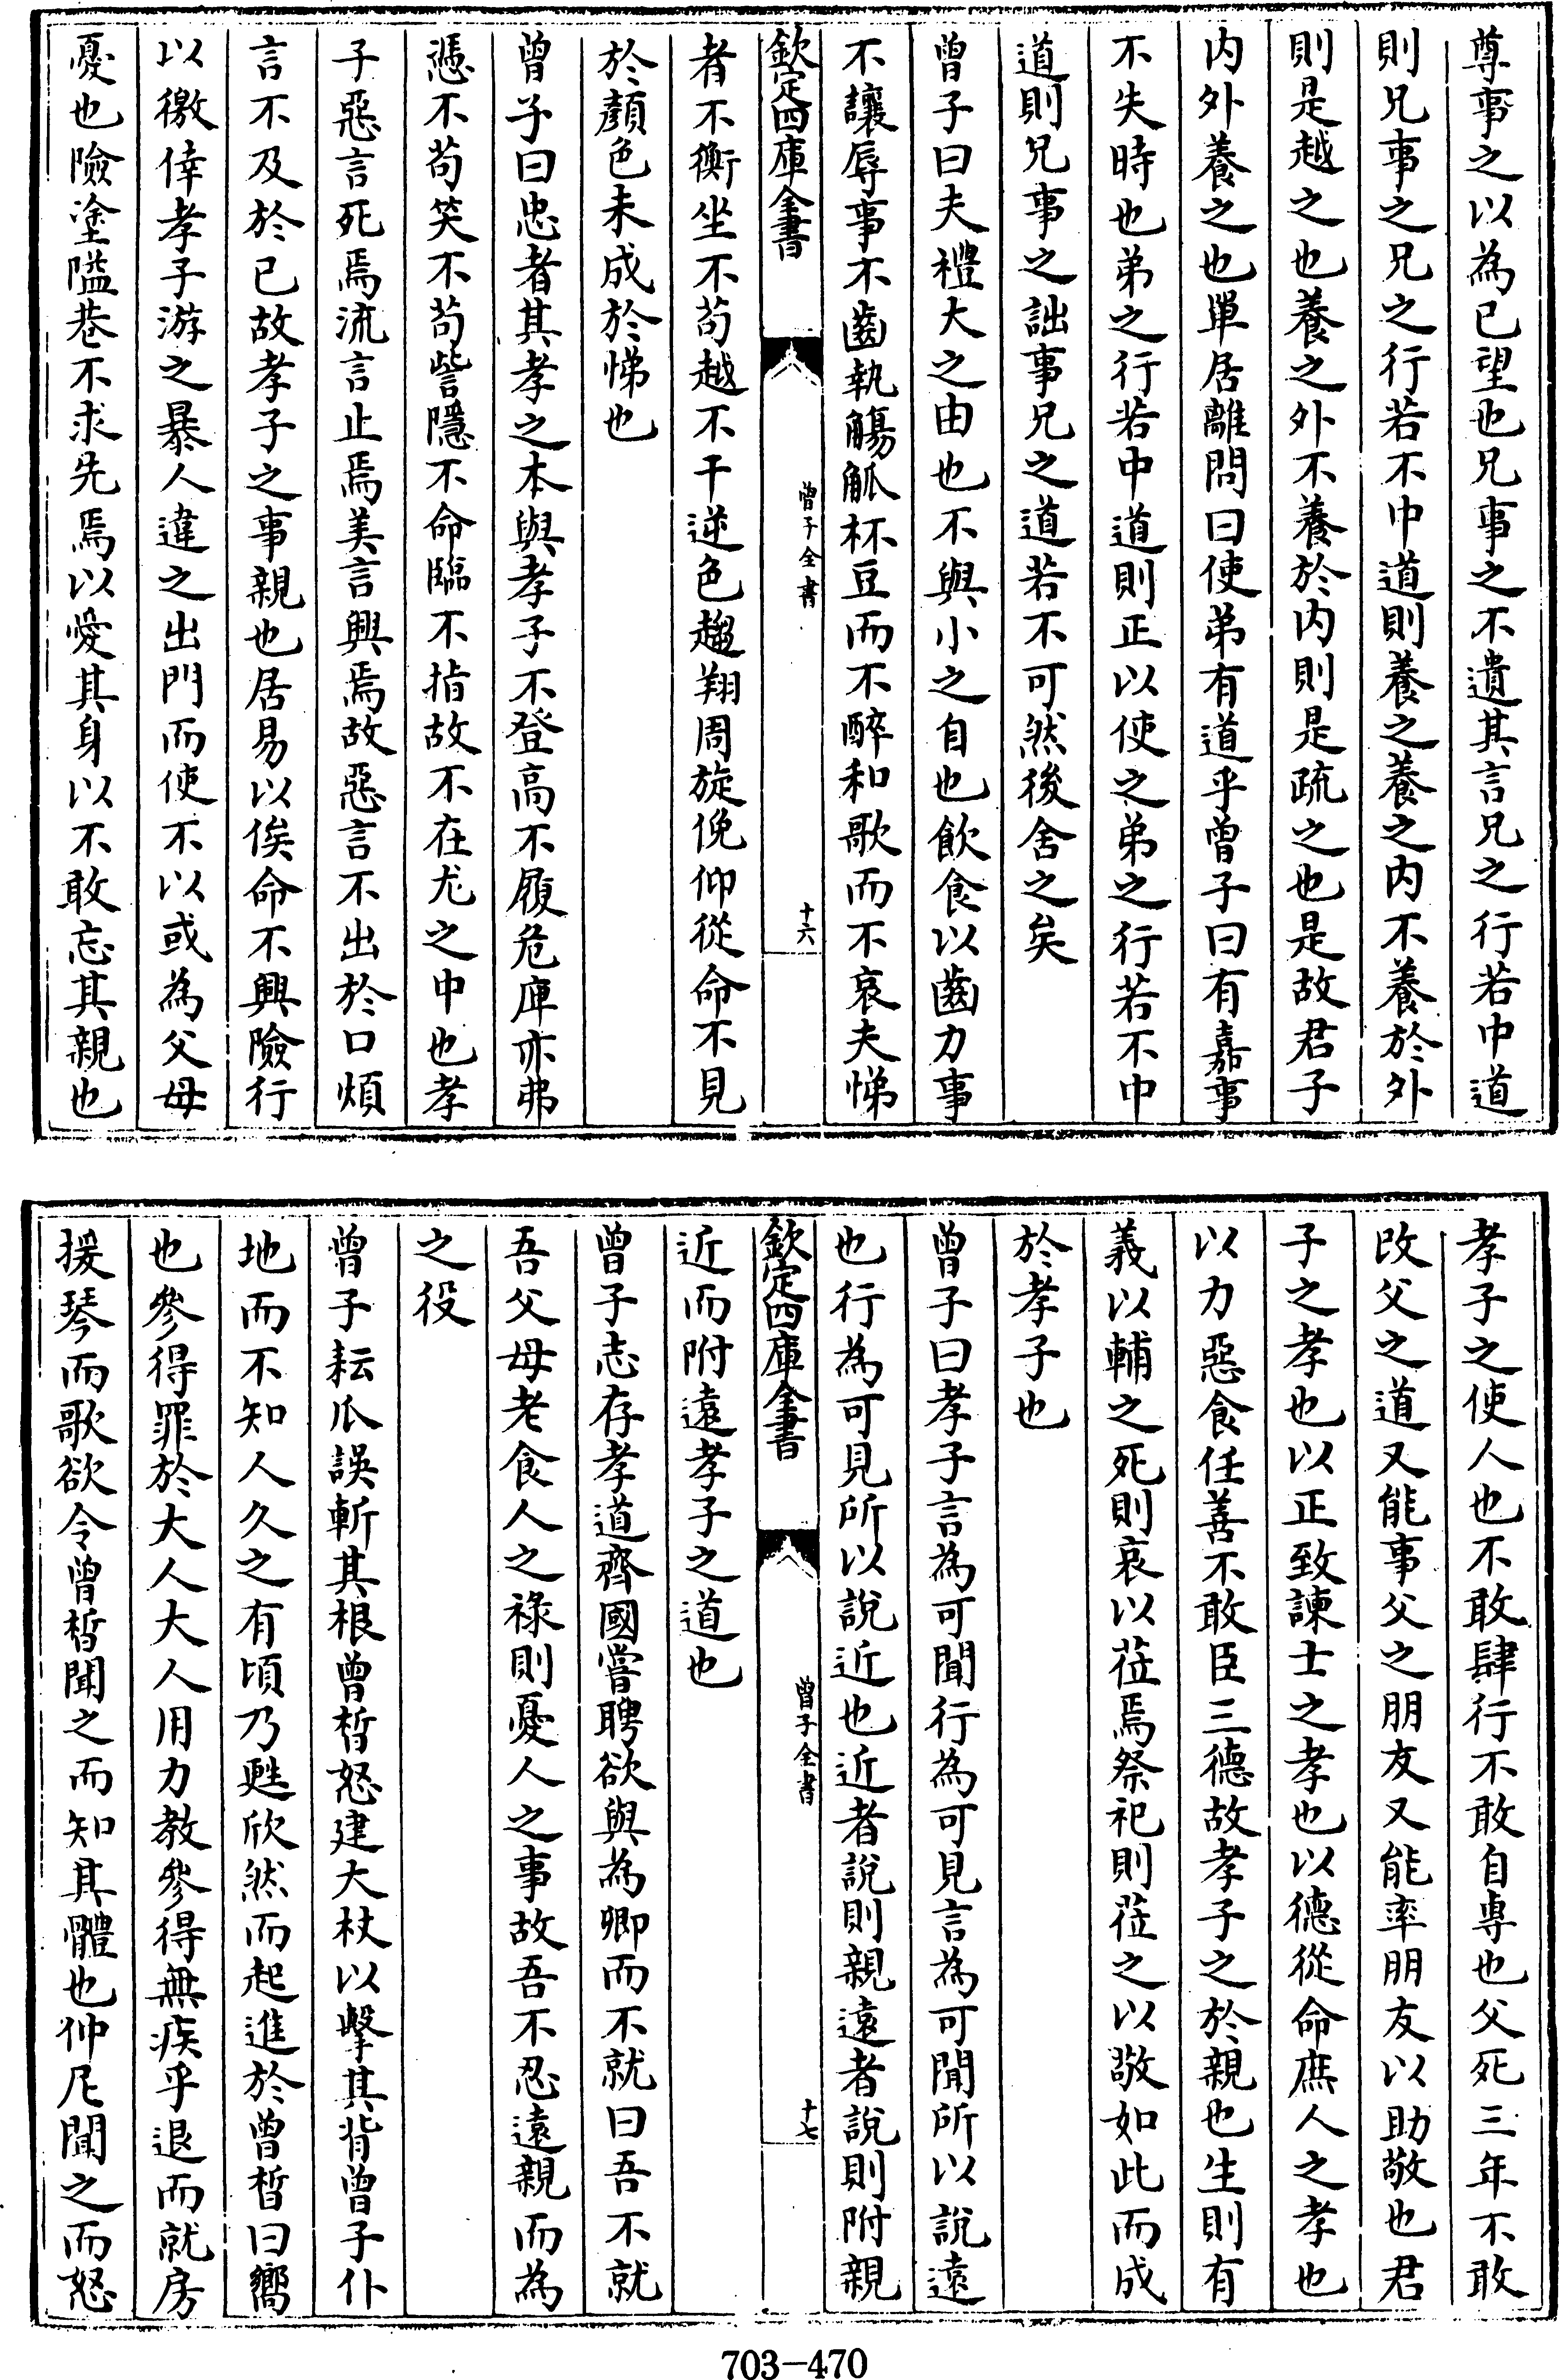 尊事之以為已望也兄事之不遺其言兄之行若中道
則兄事之兄之行若不中道則養之養之内不養於外
則是越之也養之外不養於内則是疏之也是故君子
内外養之也單居離問曰使弟有道乎曾子曰有嘉事
不失時也弟之行若中道則正以使之弟之行若不中
道則兄事之詘事兄之道若不可然後舍之矣
曾子曰夫禮大之由也不與小之自也飲食以齒力事
不讓辱事不齒執觴觚杯豆而不醉和歌而不哀夫悌
欽定四庫全書
曾子全書
十六
者不衡坐不苟越不干逆色趨翔周旋俛仰從命不見
於顔色未成於悌也
曾子曰忠者其孝之本與孝子不登高不履危庳亦弗
憑不苟笑不苟訾隱不命臨不指故不在尤之中也孝
子惡言死焉流言止焉美言興焉故惡言不出於口煩
言不及於已故孝子之事親也居易以俟命不興險行
以徼倖孝子游之暴人違之出門而使不以或為父母
憂也險塗隘巷不求先焉以愛其身以不敢忘其親也
孝子之使人也不敢肆行不敢自専也父死三年不敢
改父之道又能事父之朋友又能率朋友以助敬也君
子之孝也以正致諫士之孝也以德從命庶人之孝也
以力惡食任善不敢臣三德故孝子之於親也生則有
義以輔之死則哀以莅焉祭祀則莅之以敬如此而成
於孝子也
曾子曰孝子言為可聞行為可見言為可聞所以說遠
也行為可見所以說近也近者說則親遠者說則附親
欽定四庫全書
曾子全書
十七
近而附遠孝子之道也
曾子志存孝道齊國嘗聘欲與為卿而不就曰吾不就
吾父母老食人之祿則憂人之事故吾不忍遠親而為
之役
曾子耘瓜誤斬其根曾晳怒建大杖以擊其背曾子仆
地而不知人久之有頃乃甦欣然而起進於曾晳曰嚮
也參得罪於大人大人用力教參得無疾乎退而就房
援琴而歌欲令曾晳聞之而知其體也仲尼聞之而怒
703-470